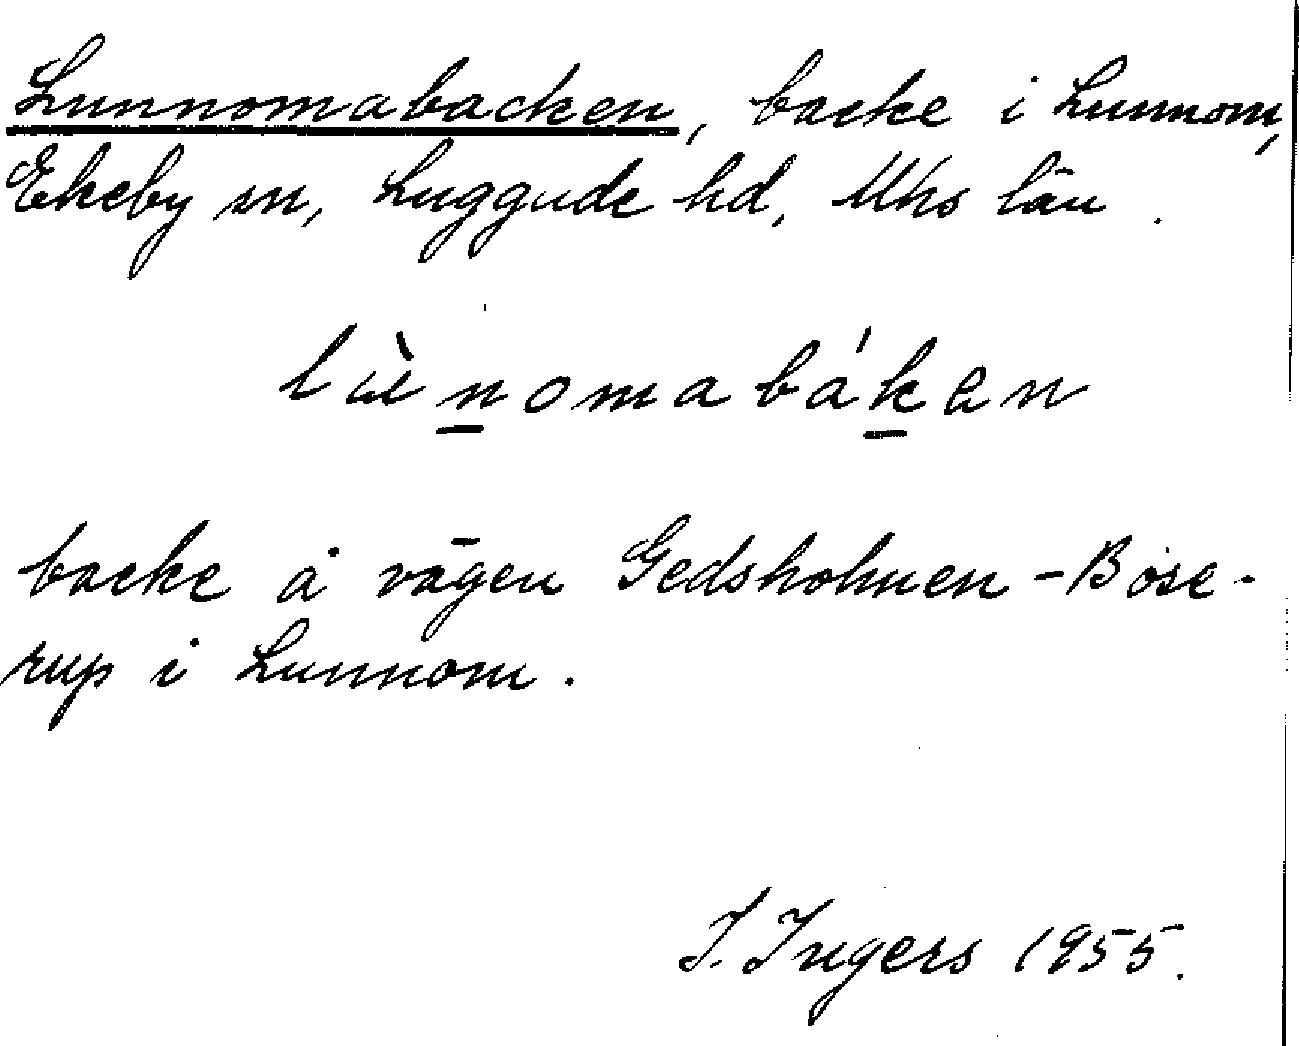 Lunnomabacken, backe i Lunnom,
Ekeby sn, Luggude hd, Mhs län.
backe å vägen Gedsholmen - Böse-
rup i Lunnom.
I. Ingers 1955.